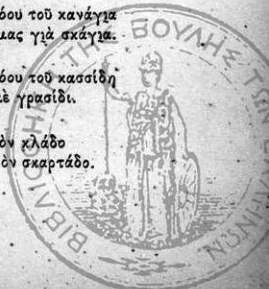 όου τοῦ κανάγια
μας γιὰ σκάγια.
όου τοῦ κασσίδη
ὲ γρασίδι.
ὸν κλάδο
ὸν σκαρτάδο.
ΒΙΒΛΙΟΘΗΚΗ ΤΗΣ ΒΟΥΛΗΣ ΤΩΝ ΕΛΛΗΝΩΝ